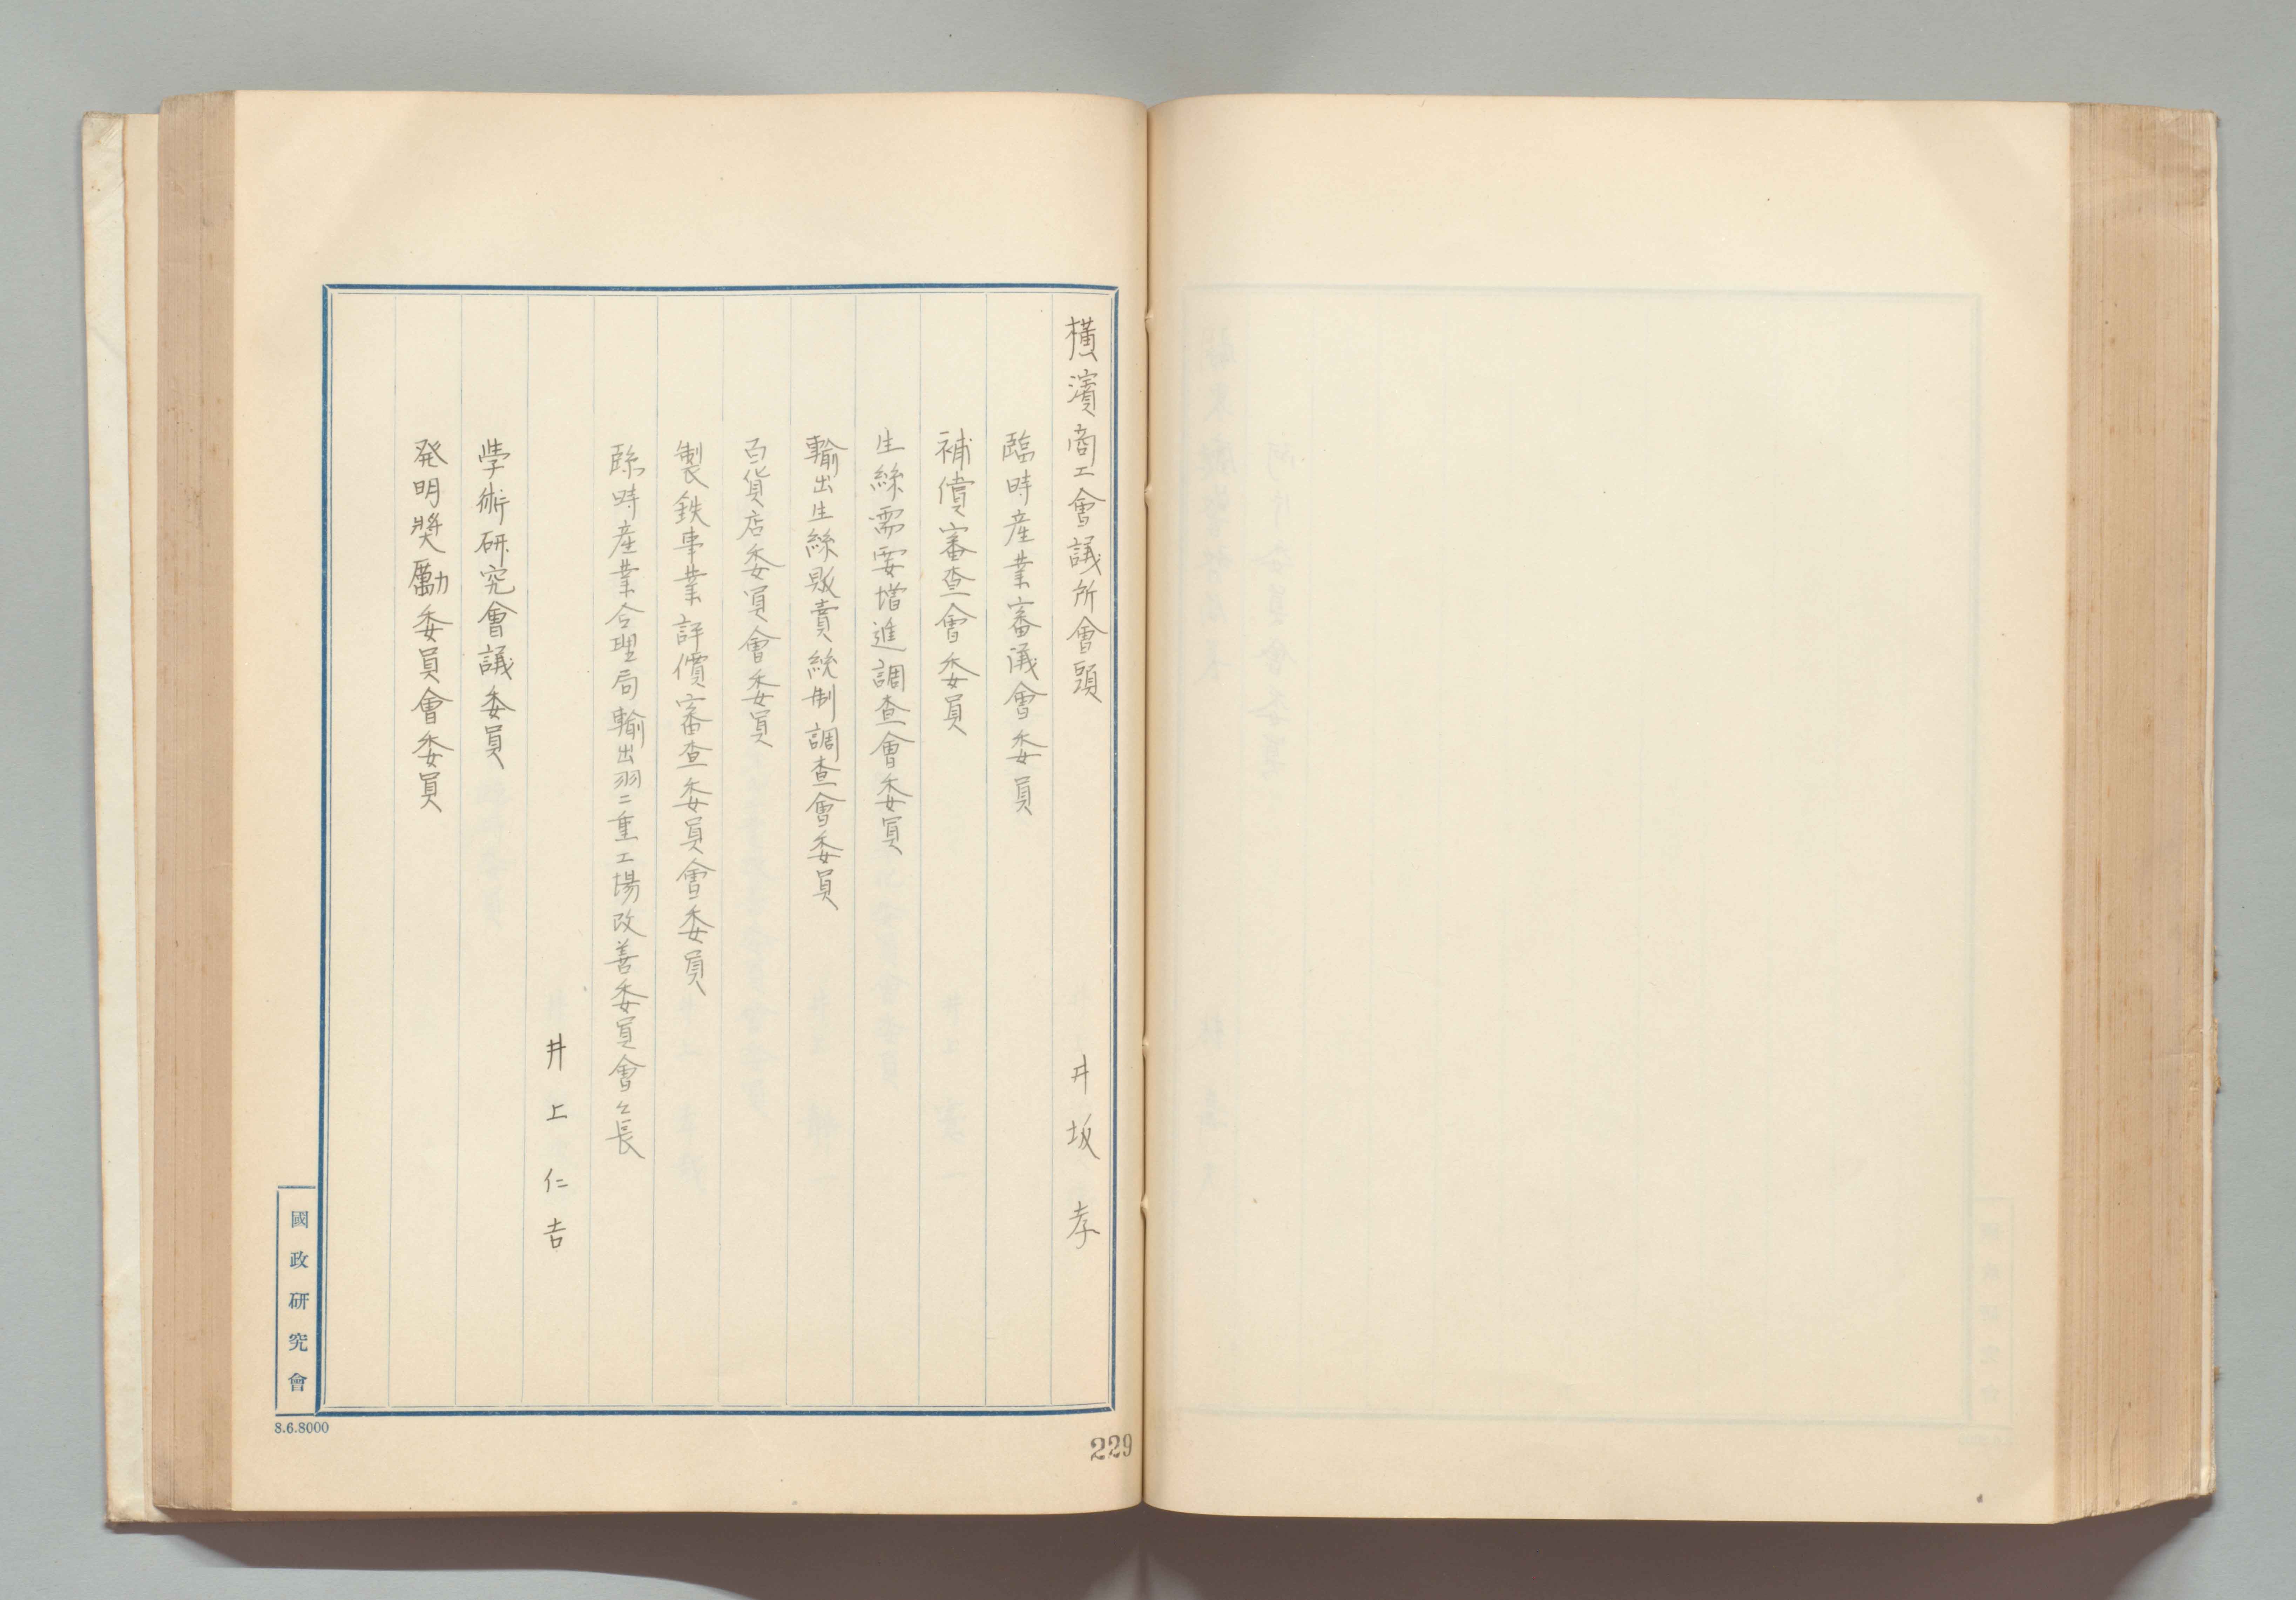 横濱商工會議所會頭　井坂孝
臨時産業審議會委員
補償審査會委員
生絲需要増進調査會委員
輸出生絲販賣統制調査會委員
百貨店委員會委員
製鉄事業評價審査委員會委員
臨時産業合理局輸出羽二重工場改善委員會々長
井上仁吉
學術研究會議委員
発明奬勵委員會委員
國政研究會
8.6.8000
229